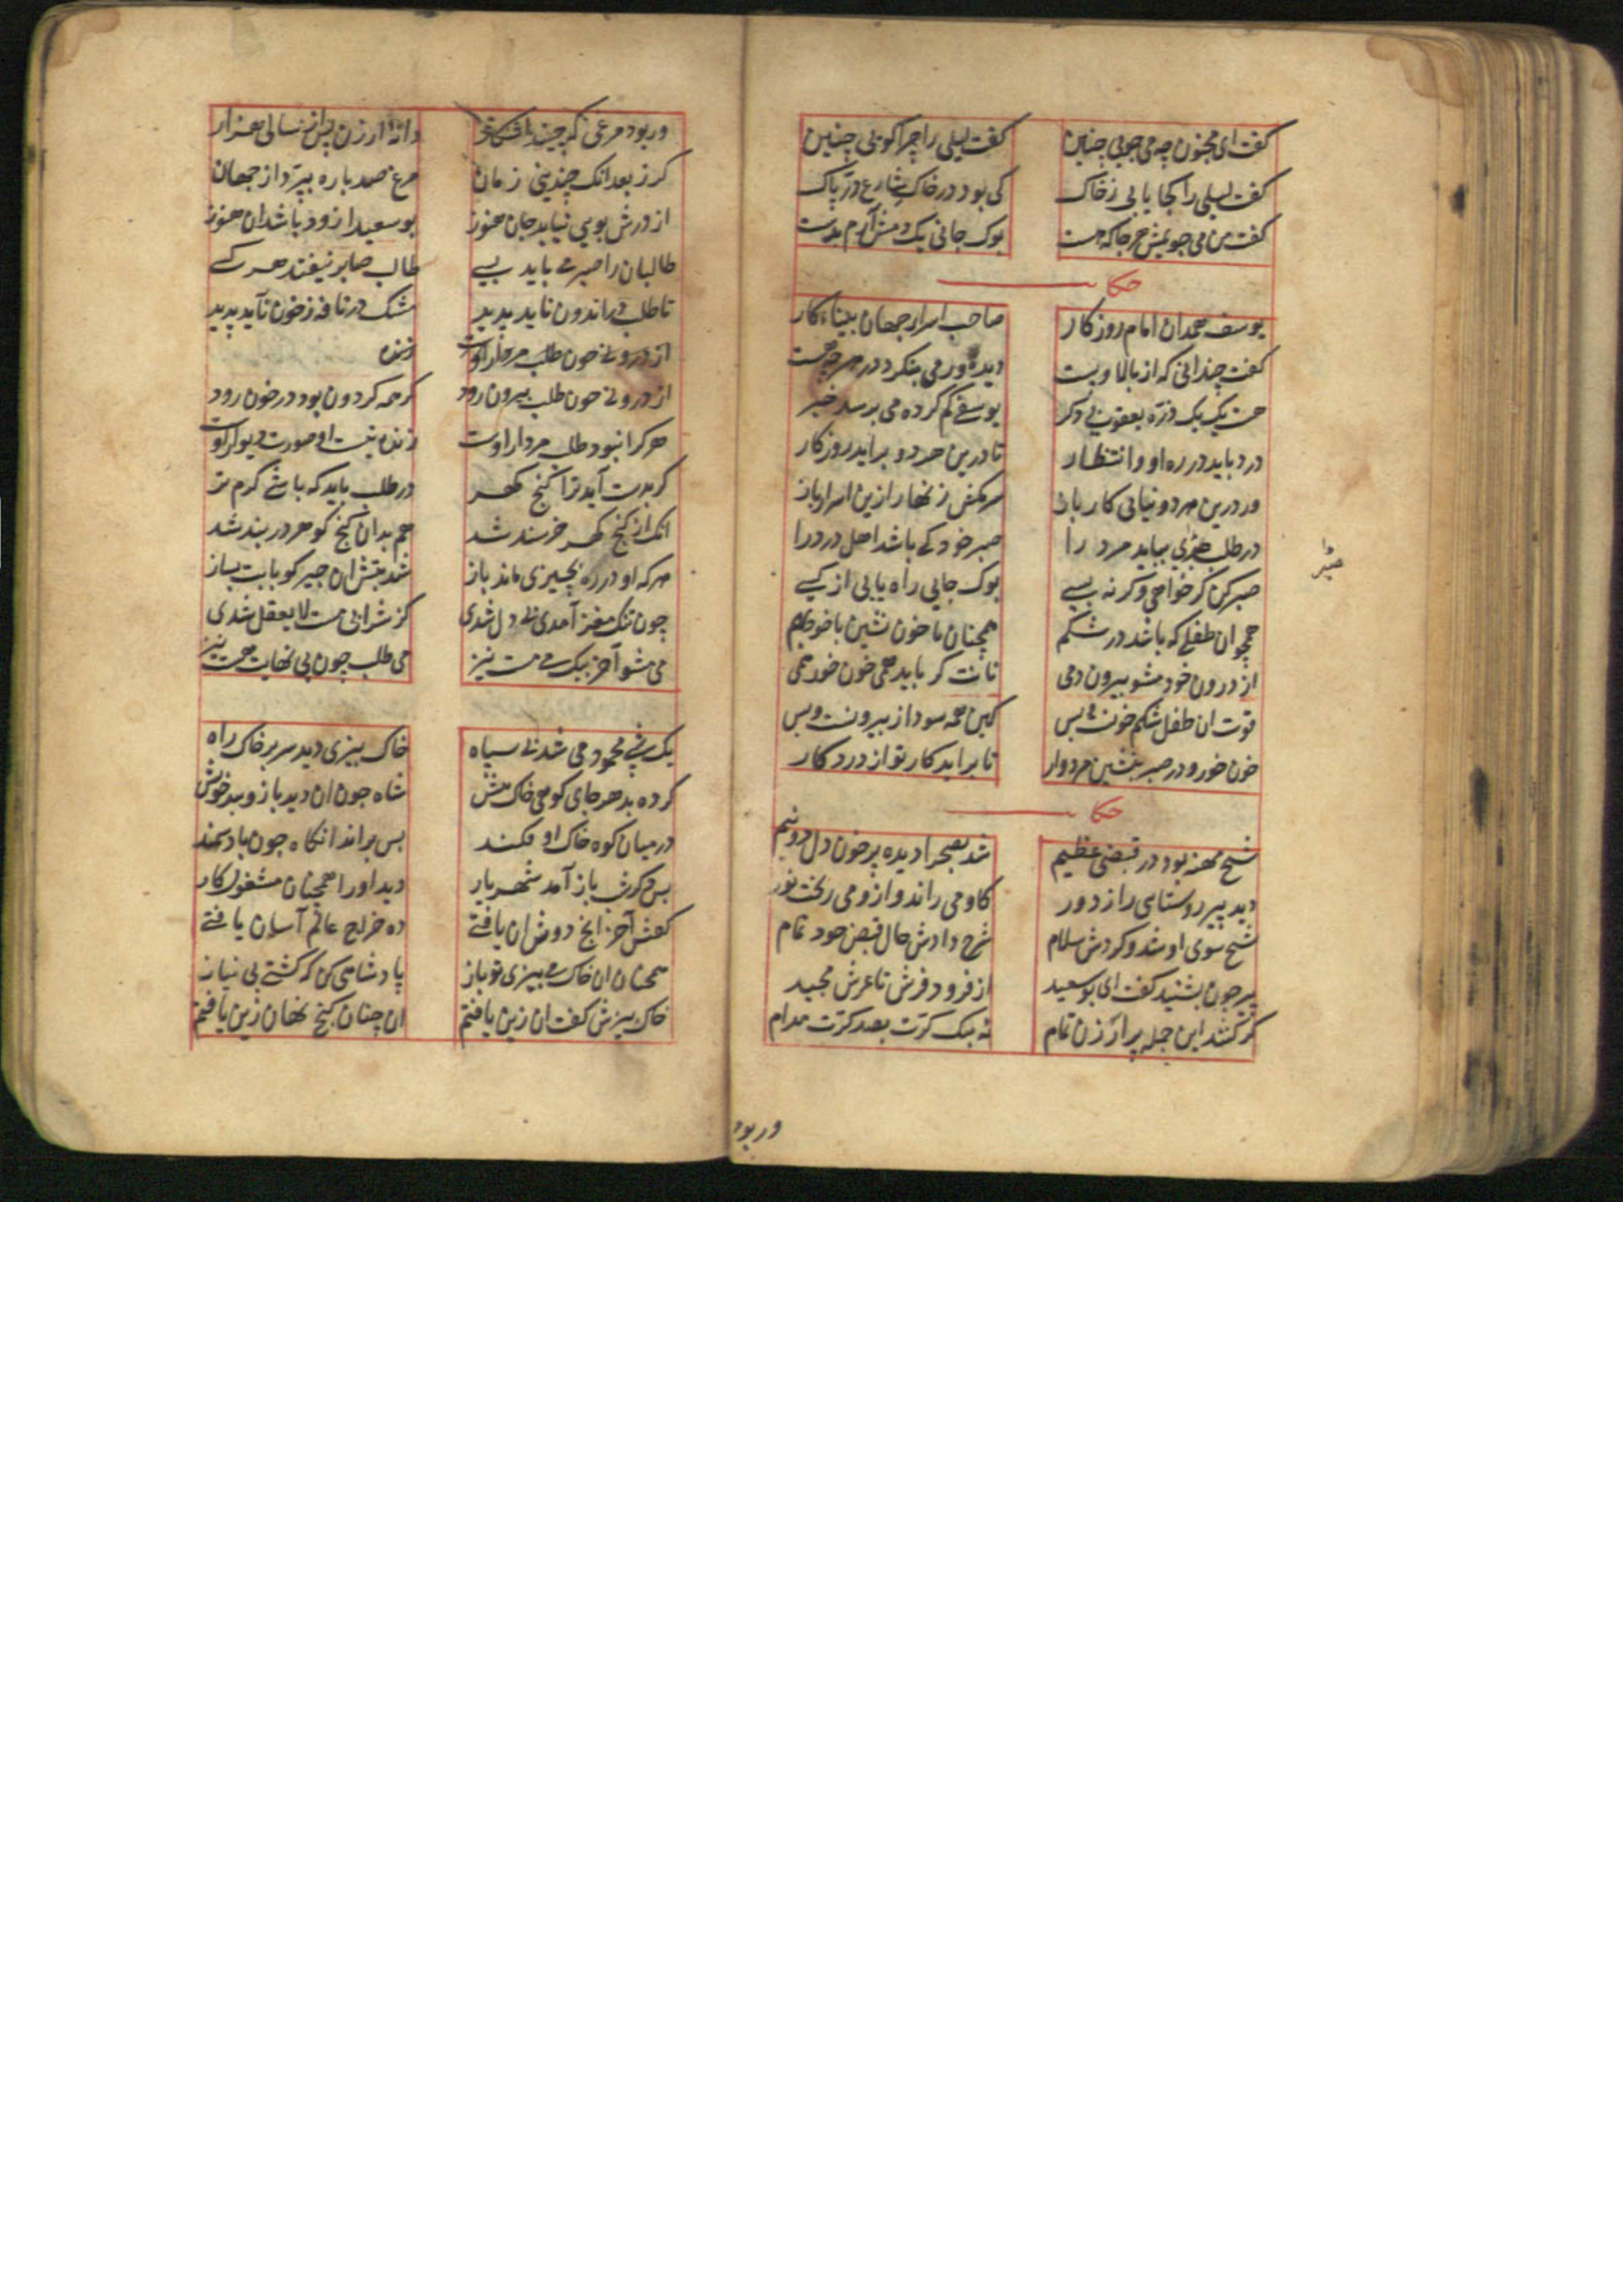 کفت ای مجنون چه می جویی چنین کفت لیلی را چرا کویی چنین
کفت لیلی را کجا یابی ز خاک کی بود در خاک شارع در پاک
کفت من می جویمش هر جا که هست بوک جائی یک دمش آرم بدست
حکا
یوسف همدان امام روزکار صاحب اسرار جهان بیناء کار
کفت چندانی که از بالا و پست دیده ور می بنکرد در هرچه هست
هست یک یک ذره یعقوبی دکر یوسفی کم کرده می برسد خبر
درد باید در ره او و انتظار تا درین هر دو براید روزکار
ور درین هر دو نیابی کار باز سر مکش زنهار ازین اسرار باز
در طلب صبری بباید مرد را صبر خود کی باشد اهل درد را
صبر
صبر کن کر خواهی و کر نه بسی بوک جایی راه یابی از کسی
همچو ان طفلی که باشد در شکم همچنان با خون نشین با خود بهم
از درون خود مشو بیرون دمی نانت کر باید همی خون خور همی
قوت ان طفل شکم خونست بس کین همه سودا ز بیرونست و بس
خون خور و در صبر بنشین مردوار تا براید کار تو از درد کار
حکا
شیخ مهنه بود در قبضی عظیم شد بصحرا دیده پر خون دل دو نیم
دید پیر روستایی را ز دور کاو می راند و ازو می ریخت نور
شیخ سوی او شد و کردش سلام شرح دادش حال قبض خود تمام
پیر چون بشنید کفت ای بوسعید از فرود فرش تا عرش مجید
کر کنند این جمله پر ارزن تمام نه بیک کرت بصد کرت مدام
وربود
ور بود مرغی که چیند آشکار دانهٔ ارزن پس از سالی هزار
کر ز بعد انک چندینی زمان مرغ صد باره بپردازد جهان
از درش بویی نیابد جان هنوز بوسعیدا زود باشد ان هنوز
طالبان را صبر می باید بسی طالب صابر نیفتد هر کسی
تا طلب در اندرون ناید پدید مشک در نافه ز خون ناید پدید
از درونی چون طلب بیرون رود کر همه کردون بود در خون رود
هر کرا نبود طلب مردار اوست زنده نیست او صورت دیوار اوست
کر بدست آید ترا کنج کهر در طلب باید که باشی کرم تر
انک از کنج کهر خرسند شد هم بدان کنج کوهر در بند شد
هر که او در ره بچیزی ماند باز شد بتش ان چیز کو با بت بساز
چون تنک مغز آمدی بی دل شدی کز شرابی مست لا یعقل شدی
می مشو آخر بیک می مست نیز می طلب چون بی نهایت هست نیز
یک شبی محمود می شد بی سپاه خاک بیزی دید سر بر خاک راه
کرده بد هر جای کوهی خاک بیش شاه چون ان دید بازوبند خویش
در میان کوه خاک او فکند بس براند انکاه چون باد سمند
بس دکر شب باز آمد شهریار دید او را همچنان مشغول کار
کفتش آخر انچ دوش ان یافتی ده خراج عالم آسان یافتی
همچنان ان خاک می بیزی تو باز پادشاهی کن که کشتی بی نیاز
خاک بیزش کفت ان زین یافتم ان چنان کنج نهان زین یافتم